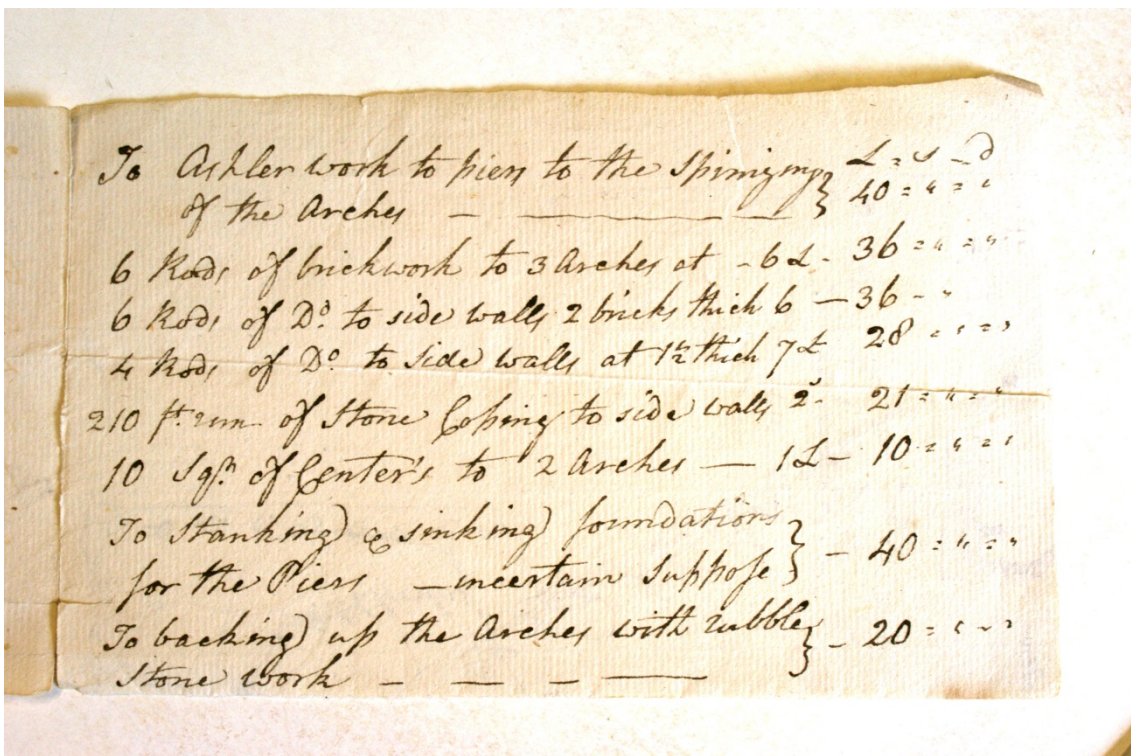 To Ashler work to piers to the Springing } £ = s - d
of the Arches — — } 40 = " = "
6 Rods of brickwork to 3 Arches at - 6£ - 36 = " = "
6 Rods of Do. to side walls 2 bricks thick 6 — 36 - "
4 Rods of Do. to Side walls at 1½ thick 7£ 28 = " = "
210 ft. run of Stone Coping to side walls 2s- 21 = " = "
10 Sqrs. of Center's to 2 Arches — 1£ - 10 = " = "
To Stanking & sinking foundations }
for the Piers — uncertain Suppose } - 40 = " = "
To backing up the Arches with rubble } - 20 = " - "
Stone work — — — —